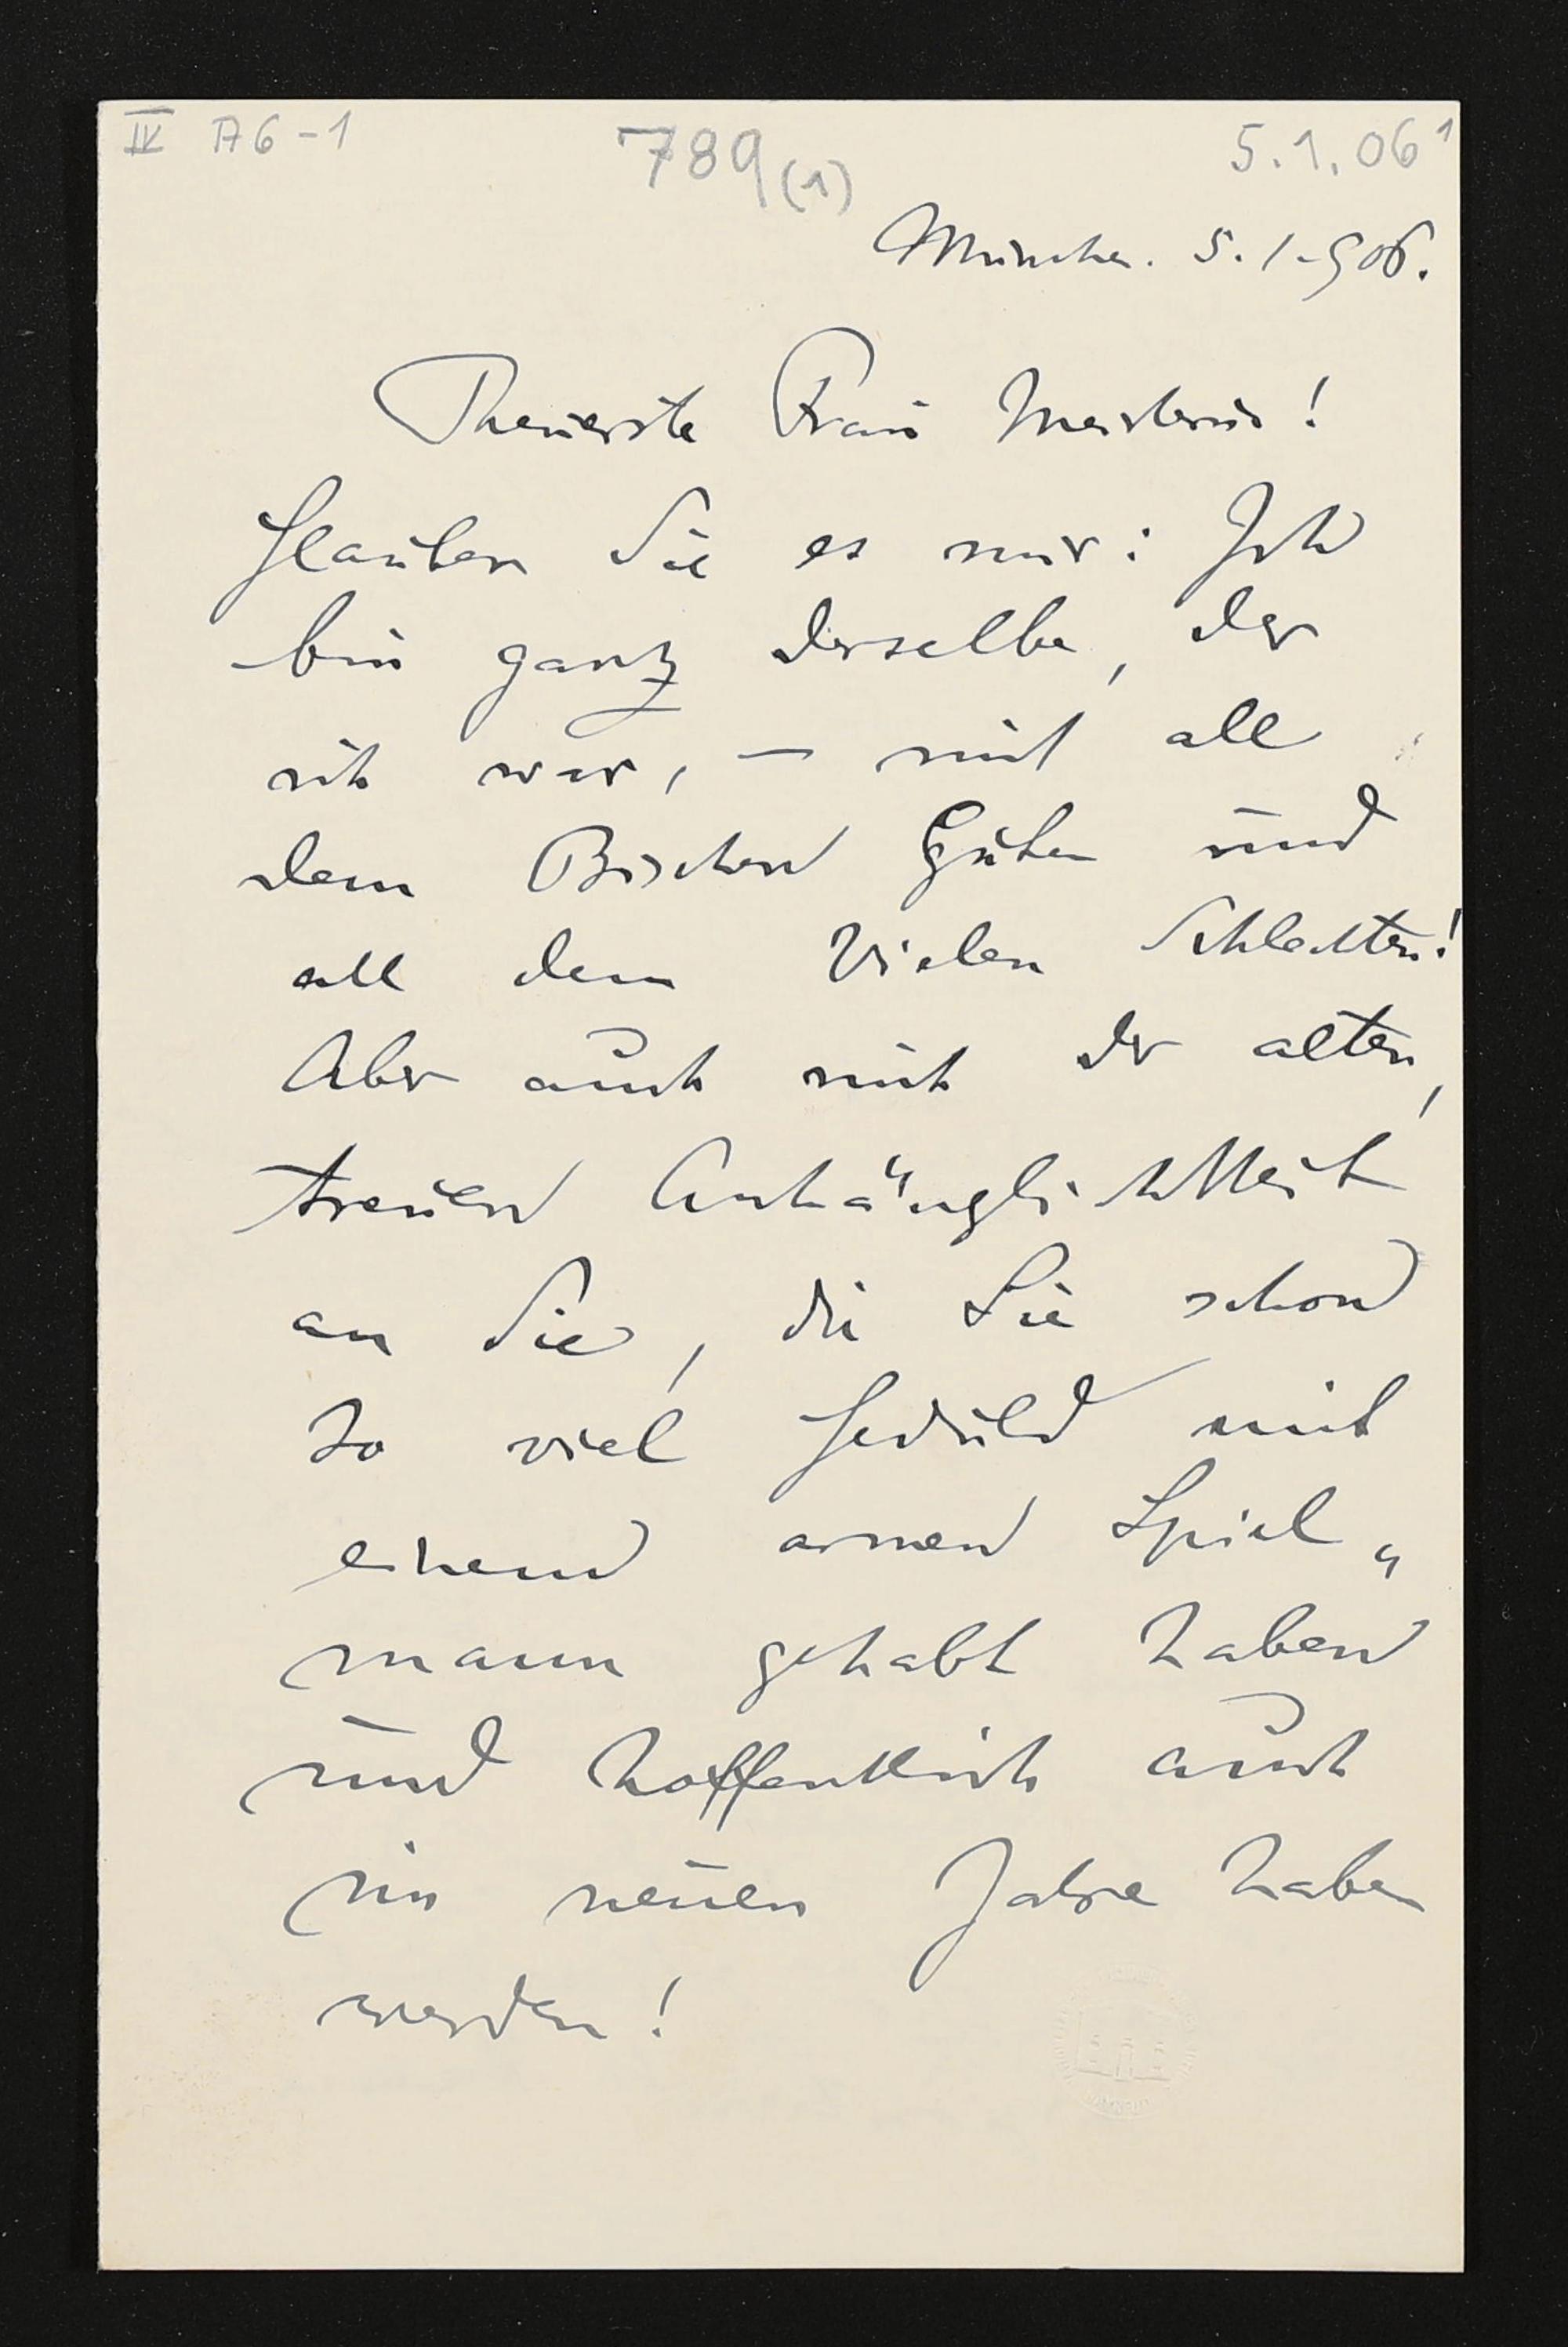 IV A6-1 789 (1) 5.1.06 1
München. 5.1.906.
Theuerste Frau Meisterin!
Glauben Sie es mir: Ich
bin ganz derselbe, der
ich war, — mit all
dem Bischen Guten und
all dem Vielen Schlechten!
Aber auch mit der alten,
treuen Anhänglichkeit
an Sie, die Sie schon
so viel Geduld mit
einem armen Spiel„
mann gehabt haben
und hoffentlich auch
im neuen Jahre haben
werden!